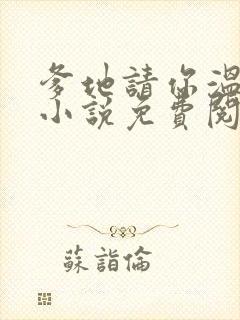 爹地請你溫
小說免費閱
蘇詣倫